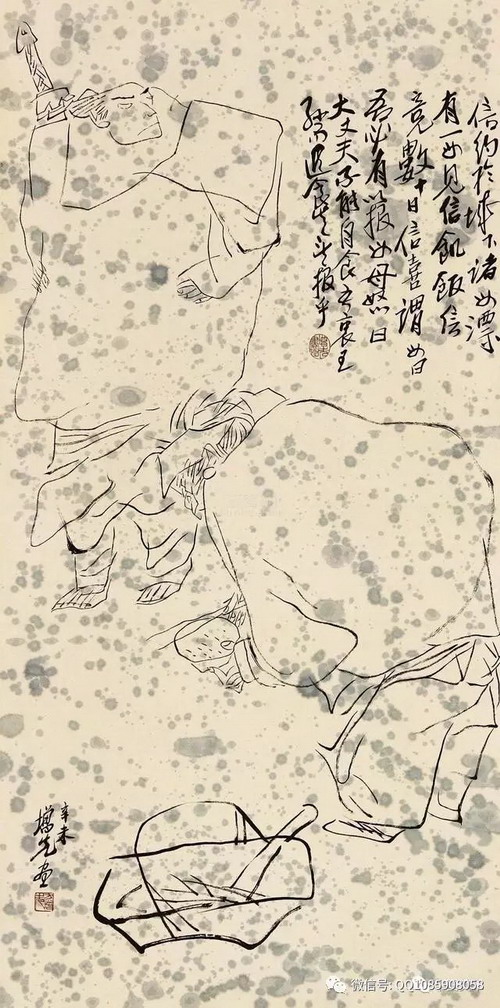 信钓於城下诸母漂
有一母见信飢飯信
竟數十日信喜謂母曰
吾必有以报母母怒曰
大丈夫不能自食吾哀王
孙而進食岂望报乎
辛未
增先画
微信号: QQ1085908058